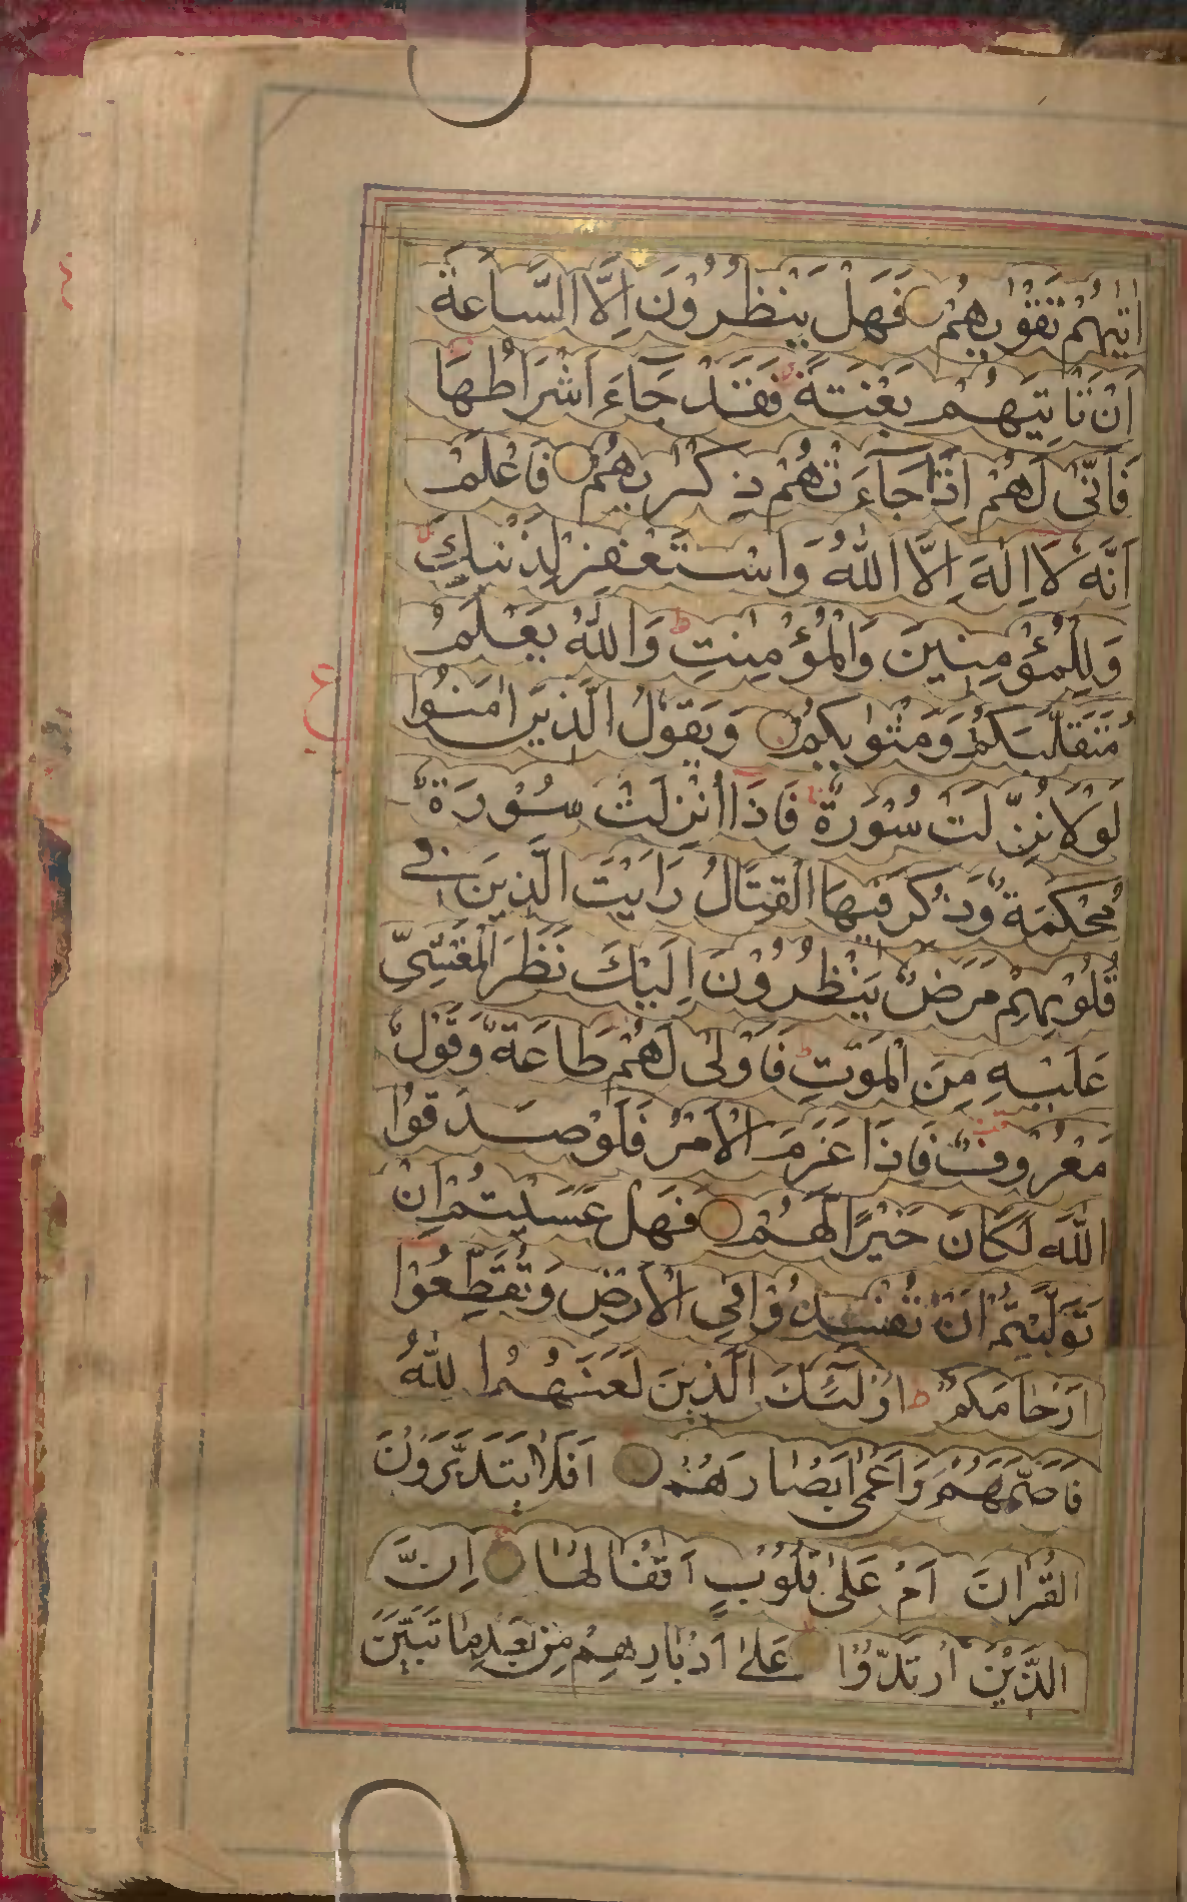 اٰتٰیهُمْ تَقْوٰیهُمْ فَهَلْ یَنْظُرُوْنَ اِلَّا السَّاعَةَ
اَنْ تَاْتِیَهُمْ بَغْتَةً فَقَدْ جَآءَ اَشْرَاطُهَا
فَاَنّٰی لَهُمْ اِذَا جَآءَتْهُمْ ذِكْرٰیهُمْ فَاعْلَمْ
اَنَّهٗ لَا اِلٰهَ اِلَّا اللّٰهُ وَاسْتَغْفِرْ لِذَنْۢبِكَ
وَلِلْمُؤْمِنِیْنَ وَالْمُؤْمِنٰتِ ط وَاللّٰهُ یَعْلَمُ
مُتَقَلَّبَكُمْ وَمَثْوٰیكُمْ وَیَقُوْلُ الَّذِیْنَ اٰمَنُوْا
لَوْلَا نُزِّلَتْ سُوْرَةٌ فَاِذَا اُنْزِلَتْ سُوْرَةٌ
مُّحْكَمَةٌ وَّذُكِرَ فِیْهَا الْقِتَالُ رَاَیْتَ الَّذِیْنَ فِیْ
قُلُوْبِهِمْ مَرَضٌ یَّنْظُرُوْنَ اِلَیْكَ نَظَرَ الْمَغْشِیِّ
عَلَیْهِ مِنَ الْمَوْتِ ط فَاَوْلٰی لَهُمْ طَاعَةٌ وَّقَوْلٌ
مَعْرُوْفٌ فَاِذَا عَزَمَ الْاَمْرُ فَلَوْ صَدَقُوا
اللّٰهَ لَكَانَ خَیْرًا لَّهُمْ فَهَلْ عَسَیْتُمْ اِنْ
تَوَلَّیْتُمْ اَنْ تُفْسِدُوْا فِی الْاَرْضِ وَتُقَطِّعُوْا
اَرْحَامَكُمْ ط اُولٰٓئِكَ الَّذِیْنَ لَعَنَهُمُ اللّٰهُ
فَاَصَمَّهُمْ وَاَعْمٰی اَبْصَارَهُمْ اَفَلَا یَتَدَبَّرُوْنَ
الْقُرْاٰنَ اَمْ عَلٰی قُلُوْبٍ اَقْفَالُهَا اِنَّ
الَّذِیْنَ ارْتَدُّوْا عَلٰی اَدْبَارِهِمْ مِنْ بَعْدِ مَا تَبَیَّنَ
ع